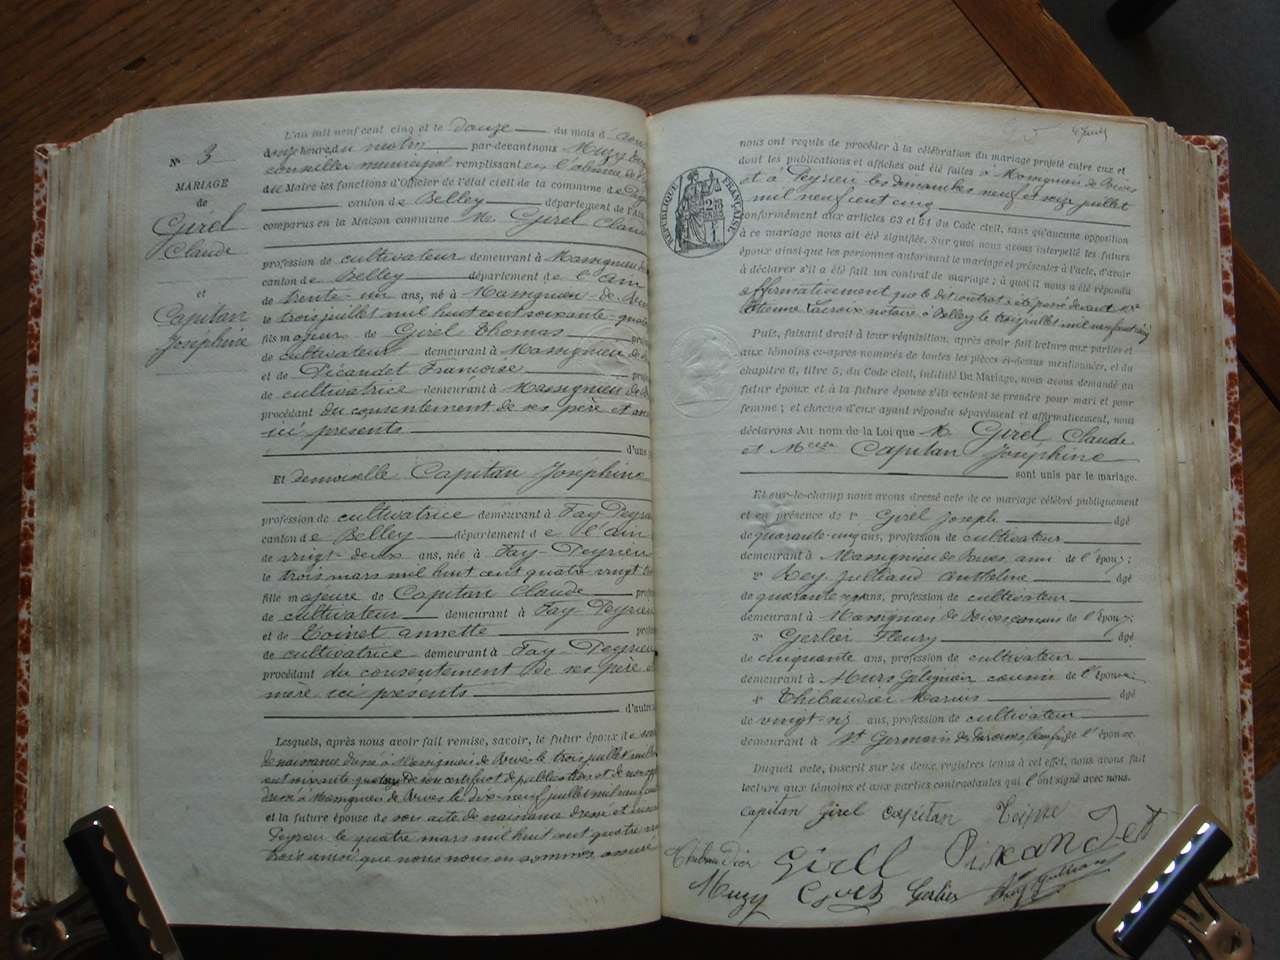 N° 3
MARIAGE
de
Girel
Claude
et
Capitan
Joséphine
L'an mil neuf cent cinq et le douze du mois d
onze heure du matin par-devant nous Muzy
conseiller municipal remplissant en l'absence de
du Maire les fonctions d'Officier de l'état civil de la commune de
canton de Belley département de l'Ain
comparus en la Maison commune M. Girel Claude
profession de cultivateur demeurant à Massignieu de
canton de Belley département de l'ain
de trente-un ans, né à Massignieu-de-Rives
le trois juillet mil huit cent soixante-quatorze
fils majeur de Girel Thomas
de cultivateur demeurant à Massignieu de
et de Picandet Françoise
de cultivatrice demeurant à Massignieu de
procédant du consentement de ses père et
ici présents
d'une
Et demoiselle Capitan Joséphine
profession de cultivatrice demeurant à Fay-Peyrieu
canton de Belley département de l'ain
de vingt-deux ans, née à Fay-Peyrieu
le trois mars mil huit cent quatre vingt
fille majeure de Capitan Claude
de cultivateur demeurant à Fay Peyrieu
et de Toinet annette
de cultivatrice demeurant à Fay-Peyrieu
procédant du consentement de ses père
mère ici présents
d'autre
Lesquels, après nous avoir fait remise, savoir, le futur époux de son
de naissance dressé à Massignieu de Rives le trois juillet mil
cent soixante quatorze de son certificat de publication et de non
dressé à Massignieu de Rives le dix-neuf juillet mil neuf cent
et la future épouse de son acte de naissance dressé
Peyrieu le quatre mars mil huit cent quatre
trois ainsi que nous nous en sommes assuré
RÉPUBLIQUE FRANÇAISE
nous ont requis de procéder à la célébration du mariage projeté entre eux et
dont les publications et affiches ont été faites à Massignieu de Rives
et à Peyrieu les dimanches neuf et seize juillet
mil neuf cent cinq
conformément aux articles 63 et 64 du Code civil, sans qu'aucune opposition
à ce mariage nous ait été signifiée. Sur quoi nous avons interpellé les futurs
époux ainsi que les personnes autorisant le mariage et présentes à l'acte, d'avoir
à déclarer s'il a été fait un contrat de mariage; à quoi il nous a été répondu
affirmativement que le dit contrat a été passé devant Me
Etienne Lacroix notaire à Belley le trois juillet mil neuf cent cinq
Puis, faisant droit à leur réquisition, après avoir fait lecture aux parties et
aux témoins ci-après nommés de toutes les pièces ci-dessus mentionnées, et du
chapitre 6, titre 5, du Code civil, intitulé Du Mariage, nous avons demandé au
futur époux et à la future épouse s'ils veulent se prendre pour mari et pour
femme; et chacun d'eux ayant répondu séparément et affirmativement, nous
déclarons Au nom de la Loi que M. Girel Claude
et Melle Capitan Joséphine
sont unis par le mariage.
Et sur-le-champ nous avons dressé acte de ce mariage célébré publiquement
et en présence de: 1° Girel Joseph âgé
de quarante-cinq ans, profession de cultivateur
demeurant à Massignieu de Rives ami de l'époux;
2° Rey Julliand Anthelme âgé
de quarante ans, profession de cultivateur
demeurant à Massignieu de Rives cousin de l'époux;
3° Gerlier Fleury âgé
de cinquante ans, profession de cultivateur
demeurant à Murs Gelignieu cousin de l'épouse
4° Thibaudier Marius âgé
de vingt-six ans, profession de cultivateur
demeurant à St Germain les Paroisses de l'épouse
Duquel acte, inscrit sur les deux registres tenus à cet effet, nous avons fait
lecture aux témoins et aux parties contractantes qui l'ont signé avec nous.
capitan Girel Capitan
Thibaudier Girel
Muzy Gerlier